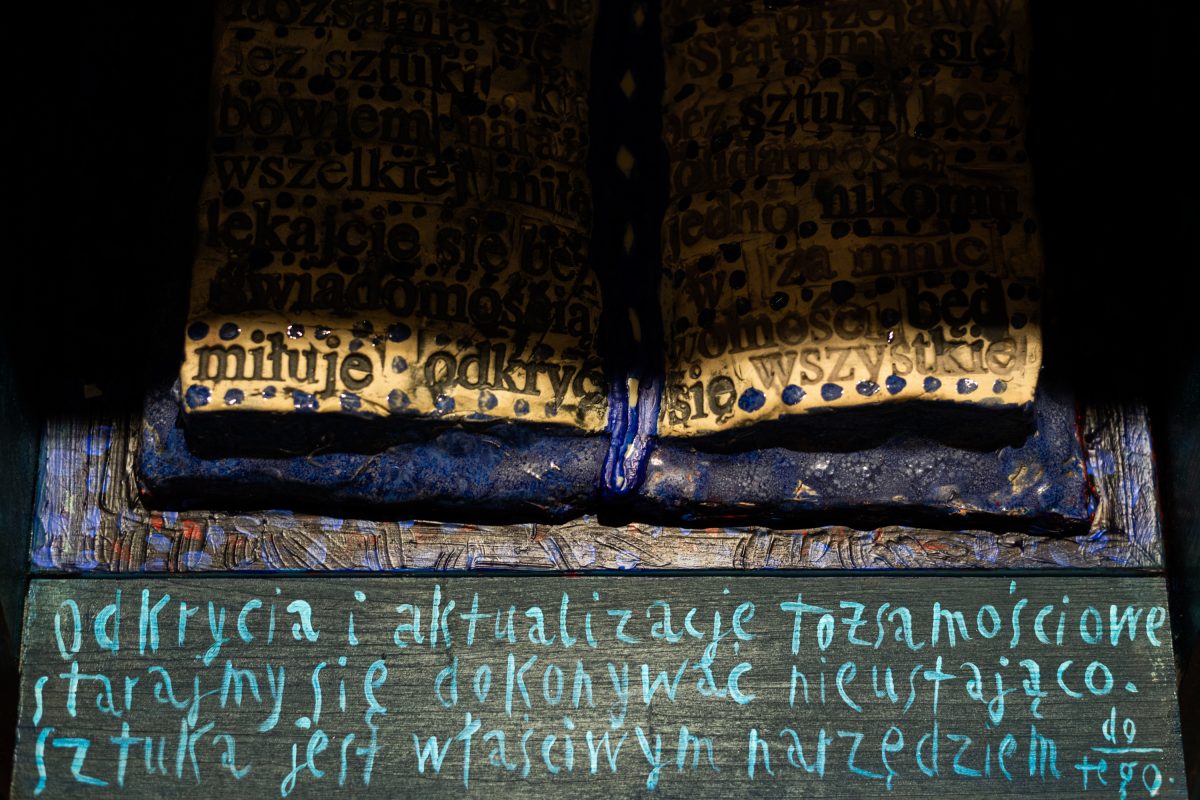 się
sztuki
bowiem
wszelkiej
lękajcie się bez
miłuje odkryć
przejawy
Starajmy się
sztuki bez
jedno nikomu
w za mnie
będ
się wszystkie
Odkrycia i aktualizacje tożsamościowe
starajmy się dokonywać nieustająco.
Sztuka jest właściwym narzędziem do tego.